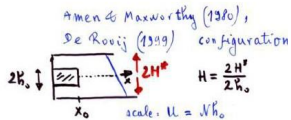 Amen & Maxworthy (1980),
De Rooij (1999) configuration
2h₀ 2H* x H = 2H* / 2h₀
x₀
scale: U = Nh₀